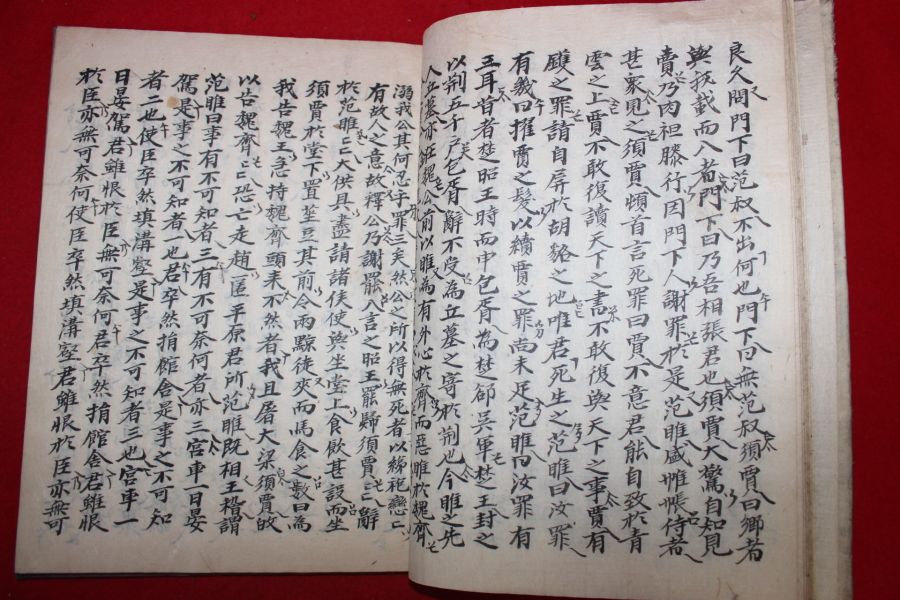 良久問門下曰范叔不出何也門下曰無范叔須賈曰鄉者
與我載而入者門下曰乃吾相張君也須賈大驚自知見
賣乃肉袒膝行因門下人謝罪於是范睢盛帷帳侍者
甚衆見之須賈頓首言死罪曰賈不意君能自致於青
雲之上賈不敢復讀天下之書不敢復與天下之事賈有
鑊之罪請自屏於胡貉之地唯君死生之范睢曰汝罪
有幾曰擢賈之髮以續賈之罪尚未足范睢曰汝罪有
三耳昔者楚昭王時而申包胥為楚卻吳軍楚王封之
以荊五千戶包胥辭不受為丘墓之寄於荊也今睢之先
人丘墓亦在魏公前以睢為有外心於齊而惡睢於魏齊
溺我公其何忍乎罪三矣然公之所以得無死者以綈袍戀〻
有故人之意故釋公乃謝罷入言之昭王罷歸須賈〻辭
於范睢〻大供具盡請諸侯使與坐堂上食飲甚設而坐
須賈於堂下置莝豆其前令兩黥徒夾而馬食之數曰為
我告魏王急持魏齊頭来不然者我且屠大梁須賈故
以告魏齊〻恐亡走趙匿平原君所范睢既相王稽謂
范睢曰事有不可知者三有不可奈何者亦三宮車一日晏
駕是事之不可知者一也君卒然捐館舍是事之不可知
者二也使臣卒然填溝壑是事之不可知者三也宮車一
日晏駕君雖恨於臣無可奈何君卒然捐館舍君雖恨
於臣亦無可奈何使臣卒然填溝壑君雖恨於臣亦無可